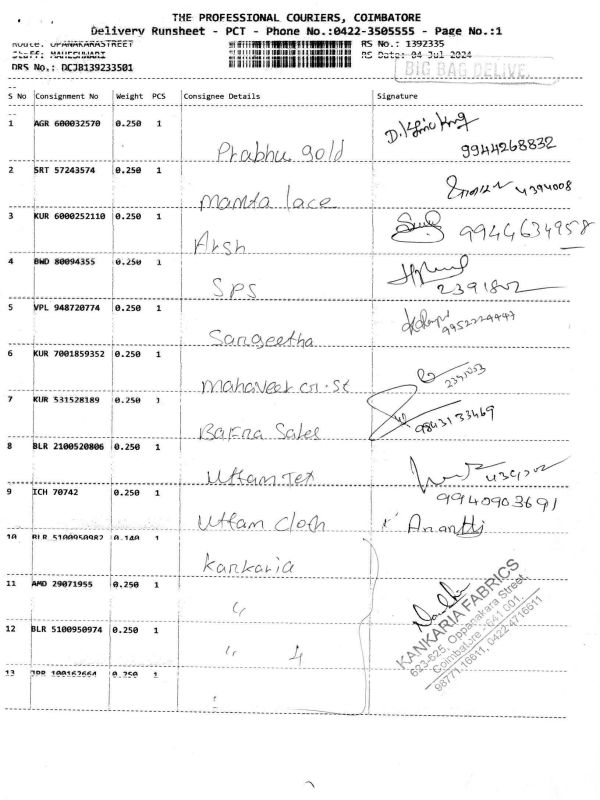 THE PROFESSIONAL COURIERS, COIMBATORE
Delivery Runsheet - PCT - Phone No.:0422-3505555 - Page No.:1
Route: OPANAKARASTREET RS No.: 1392335
Staff: MAHESHWARI RS Date: 04 Jul 2024
DRS No.: DCJB139233501 BIG BAG DELIVE
S No Consignment No Weight PCS Consignee Details Signature
1 AGR 600032570 0.250 1
Prabhu gold 9944268832
2 SRT 57243574 0.250 1
Mamta lace 4394008
3 KUR 6000252110 0.250 1
Arsh 9944634958
4 BWD 80094355 0.250 1
SPS 2391802
5 VPL 948720774 0.250 1
Sangeetha
6 KUR 7001859352 0.250 1
Mahaveer cr.st
7 KUR 531528189 0.250 1
Bafna Sales 9843133469
8 BLR 2100520806 0.250 1
Uttam Tex
9 ICH 70742 0.250 1 9940903691
Uttam Cloth Ananthi
10 BLR 5100950982 0.140 1
Kankaria
11 AMD 29071955 0.250 1
"
12 BLR 5100950974 0.250 1
" 4
13 JPR 100162664 0.250 1
KANKARIA FABRICS
623-625, Oppanakara Street,
Coimbatore - 641 001.
98771 16611, 0422 4716611